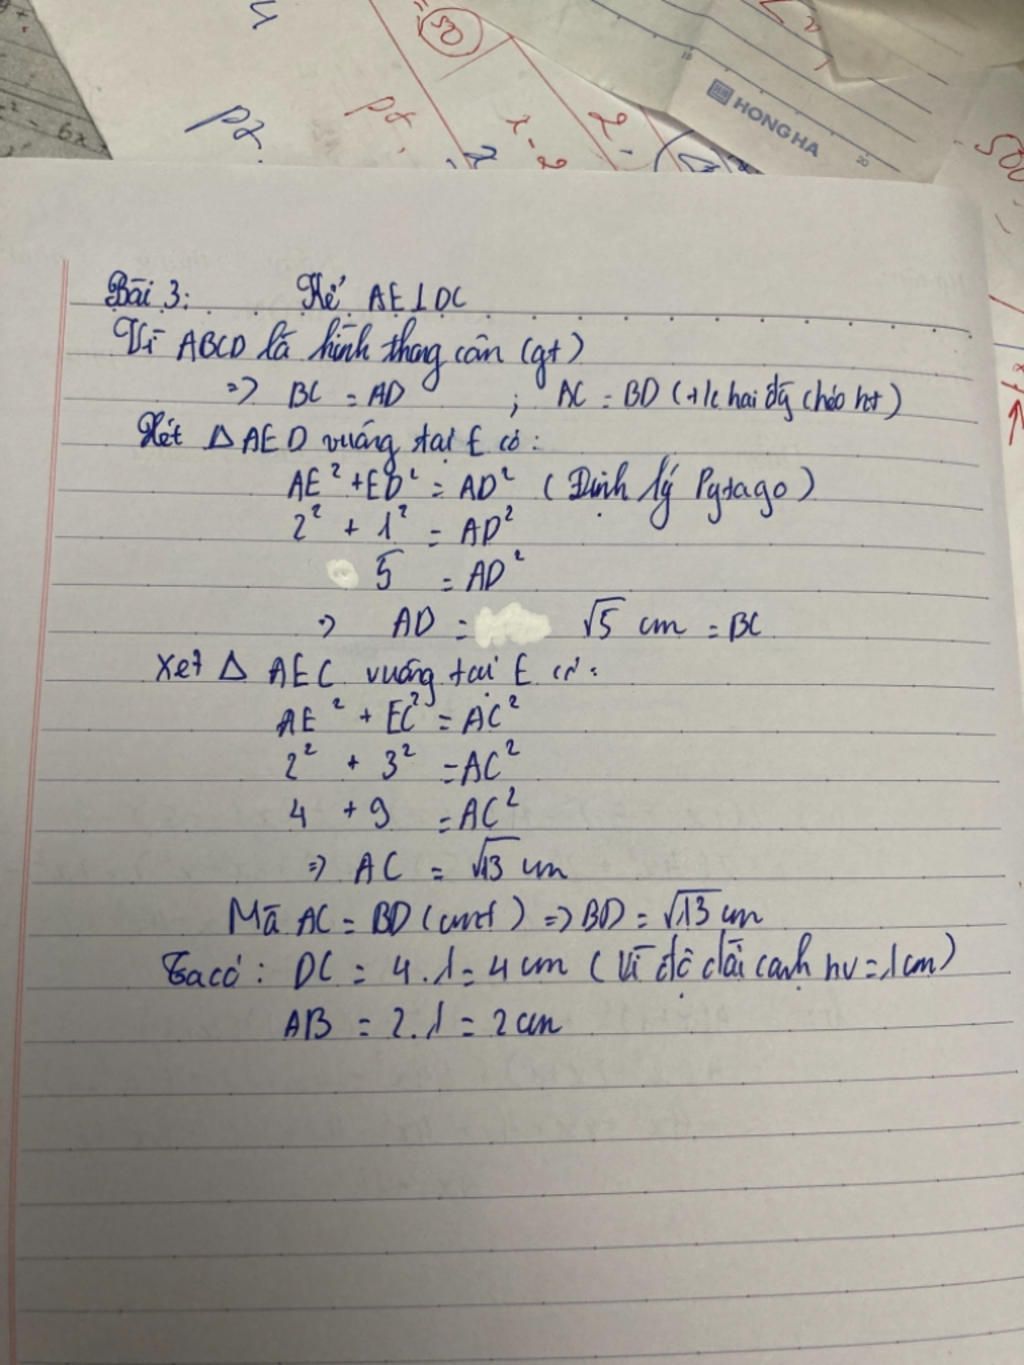 50
pt.
pt.
x-2
2
HONG HA
20
500
Bài 3: Kẻ AE⊥DC
Vì ABCD là hình thang cân (gt)
=> BC = AD ; AC = BD (t/c hai đg chéo ht)
Xét △AED vuông tại E có:
AE² + ED² = AD² (Định lý Pytago)
2² + 1² = AD²
5 = AD²
=> AD = √5 cm = BC
Xét △ AEC vuông tại E có:
AE² + EC² = AC²
2² + 3² = AC²
4 + 9 = AC²
=> AC = √13 cm
Mà AC = BD (cmt) => BD = √13 cm
Ta có: DC = 4.1 = 4 cm (Vì độ dài cạnh hv = 1 cm)
AB = 2.1 = 2 cm